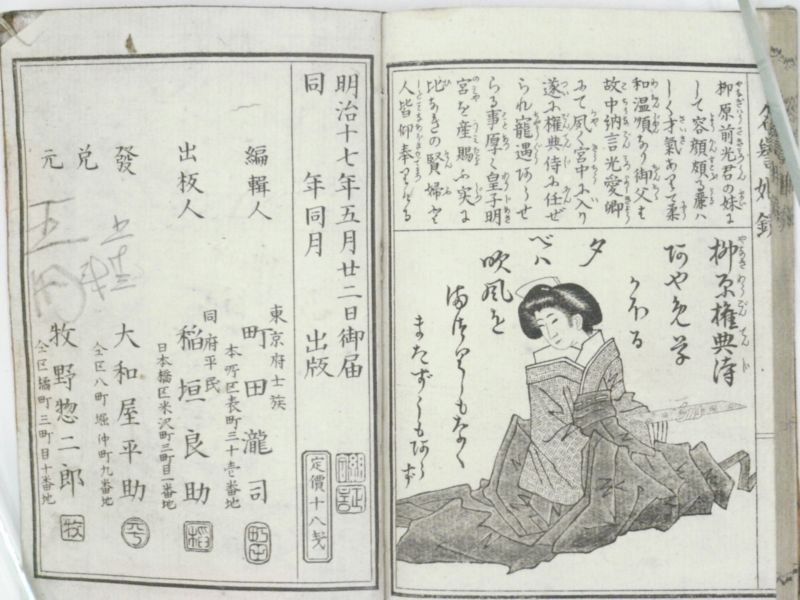 柳原前光君の妹に
して容顔頗る麗ハ
しく才氣あつて柔
和温順なり御父も
故中納言光愛卿
にて夙く宮中に入り
遂に権典侍に任ぜ
られ寵遇あらせ
らる事厚く皇子明
宮を産賜ふ実に
比なきの賢婦と
人皆仰奉りける
柳原権典侍
あやめ草
かほる
夕
べハ
吹風を
またずしもあらず
明治十七年五月廿二日御届
同 年同月 出版
定價十八戔
編輯人
東京府士族
町田瀧司
本所区表町三十壱番地
出板人
同府平民
稲垣良助
日本橋区米沢町三町目一番地
發
大和屋平助
仝区八町堀仲町九番地
兌
元
牧野惣二郎
仝区橘町三町目十番地
牧